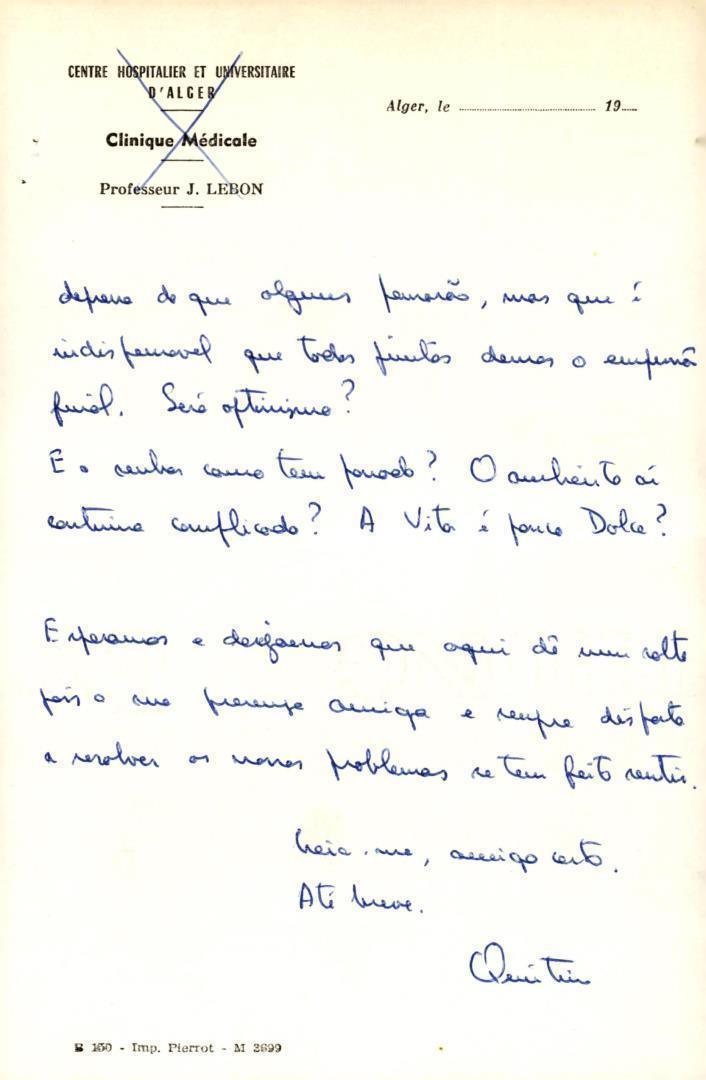 CENTRE HOSPITALIER ET UNIVERSITAIRE
D'ALGER
Clinique Médicale
Professeur J. LEBON
Alger, le 19
de que alguns pensarão, mas que é
indispensavel que todos juntos demos o empurrão
final. Será optimismo?
E o senhor como tem passado? O ambiente aí
continua complicado? A Vita é pouco Dolce?
Esperamos e desejamos que aqui dê um salto
pois a sua presença amiga e sempre disposta
a resolver os nossos problemas se tem feito sentir.
Creia-me, amigo certo.
Até breve.
Quintin
B 150 - Imp. Pierrot - M 3699